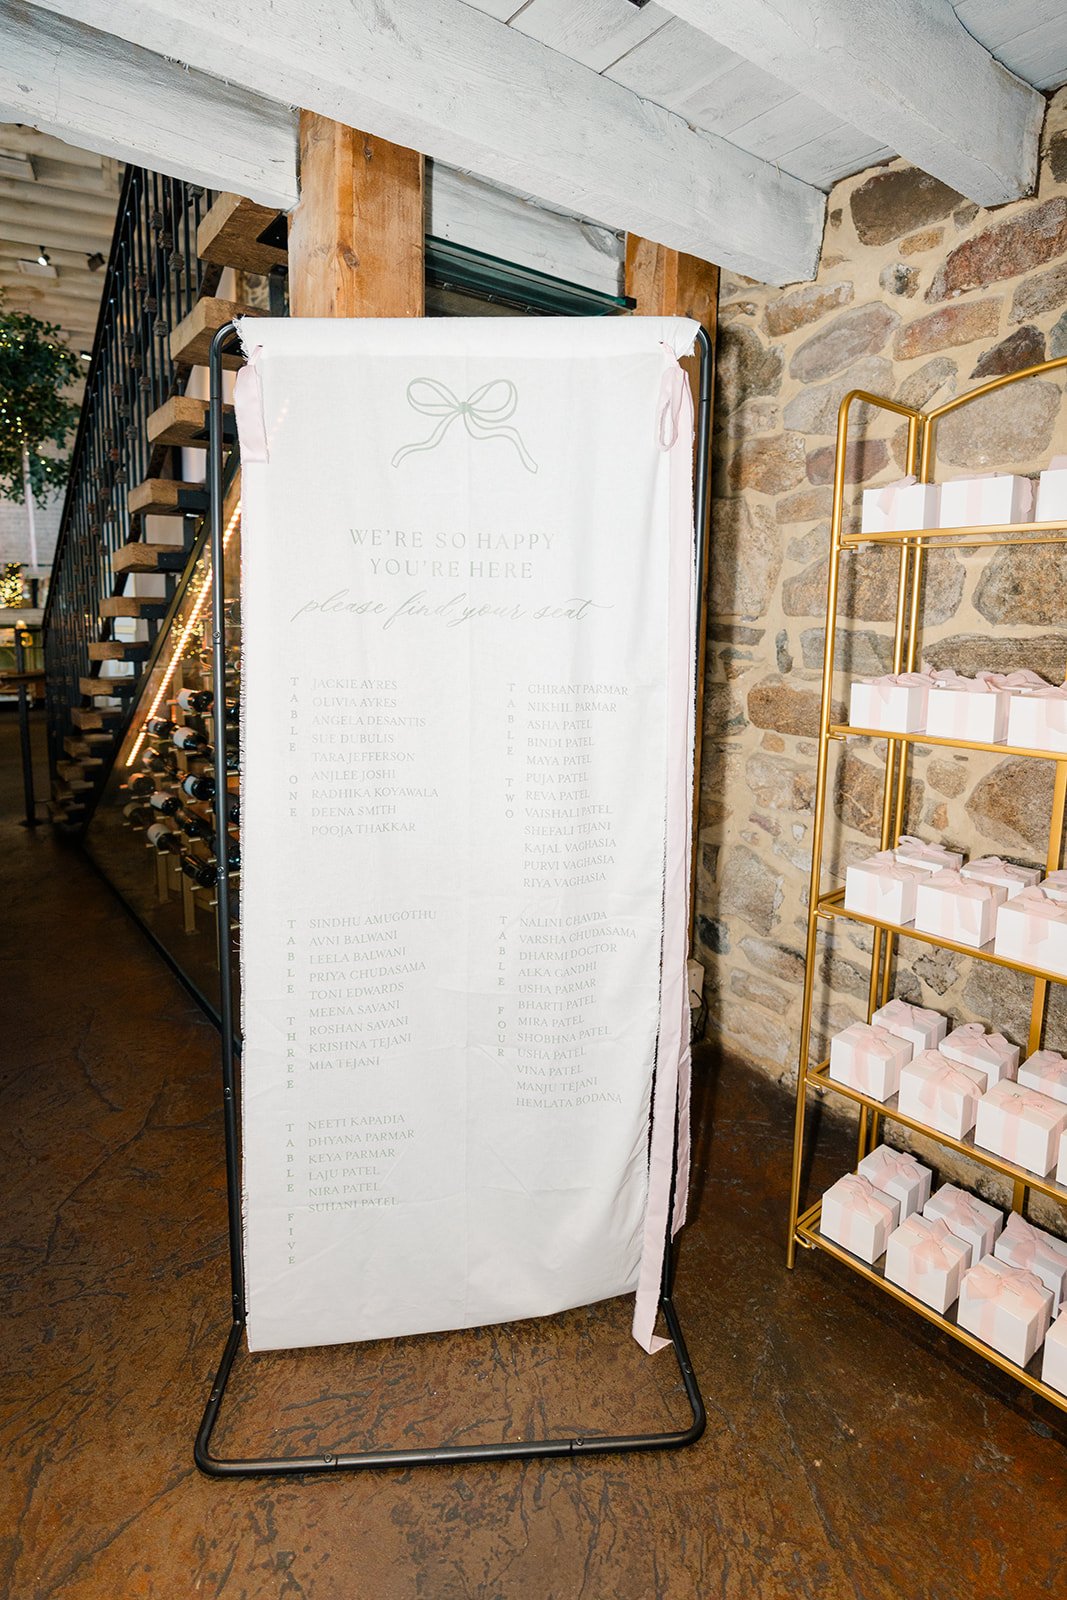 WE'RE SO HAPPY
YOU'RE HERE
please find your seat
TABLE ONE
JACKIE AYRES
OLIVIA AYRES
ANGELA DESANTIS
SUE DUBULIS
TARA JEFFERSON
ANJLEE JOSHI
RADHIKA KOYAWALA
DEENA SMITH
POOJA THAKKAR
TABLE TWO
CHIRANT PARMAR
NIKHIL PARMAR
ASHA PATEL
BINDI PATEL
MAYA PATEL
PUJA PATEL
REVA PATEL
VAISHALI PATEL
SHEFALI TEJANI
KAJAL VAGHASIA
PURVI VAGHASIA
RIYA VAGHASIA
TABLE THREE
SINDHU AMUGOTHU
AVNI BALWANI
LEELA BALWANI
PRIYA CHUDASAMA
TONI EDWARDS
MEENA SAVANI
ROSHAN SAVANI
KRISHNA TEJANI
MIA TEJANI
TABLE FOUR
NALINI CHAVDA
VARSHA CHUDASAMA
DHARMI DOCTOR
ALKA GANDHI
USHA PARMAR
BHARTI PATEL
MIRA PATEL
SHOBHNA PATEL
USHA PATEL
VINA PATEL
MANJU TEJANI
HEMLATA BODANA
TABLE FIVE
NEETI KAPADIA
DHYANA PARMAR
KEYA PARMAR
LAJU PATEL
NIRA PATEL
SUHANI PATEL